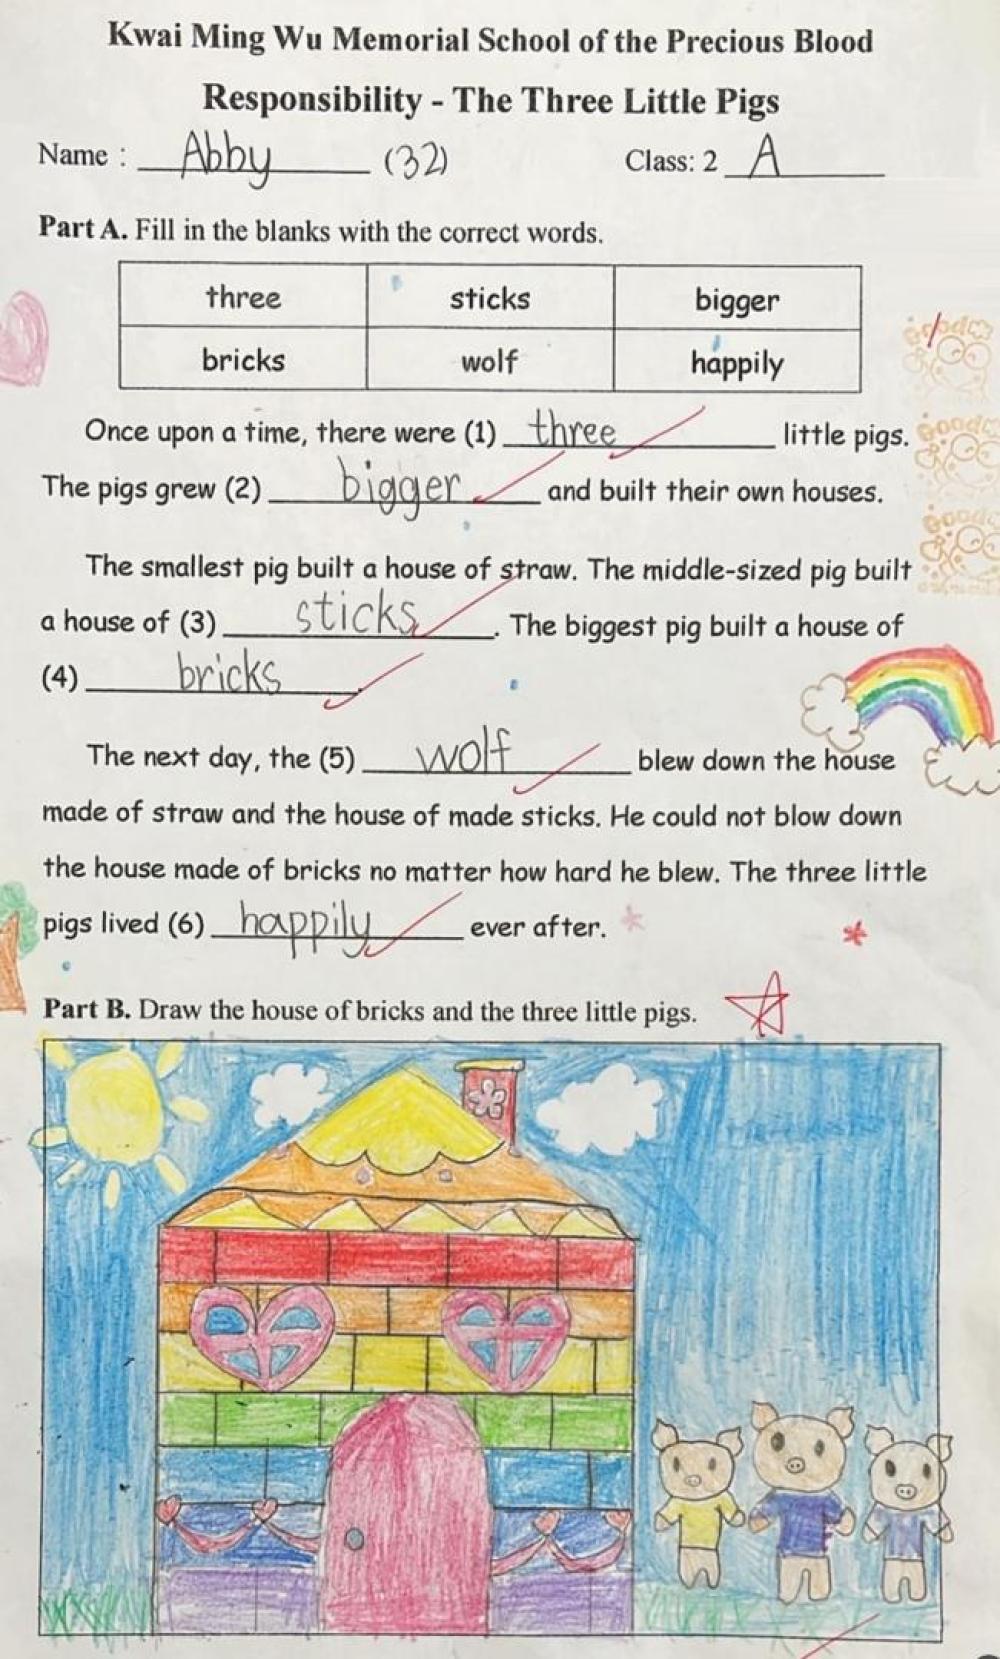 Kwai Ming Wu Memorial School of the Precious Blood
Responsibility - The Three Little Pigs
Name : Abby (32) Class: 2 A
Part A. Fill in the blanks with the correct words.
three sticks bigger
bricks wolf happily
Once upon a time, there were (1) three little pigs.
The pigs grew (2) bigger and built their own houses.
The smallest pig built a house of straw. The middle-sized pig built
a house of (3) sticks. The biggest pig built a house of
(4) bricks.
The next day, the (5) wolf blew down the house
made of straw and the house of made sticks. He could not blow down
the house made of bricks no matter how hard he blew. The three little
pigs lived (6) happily ever after.
Part B. Draw the house of bricks and the three little pigs.